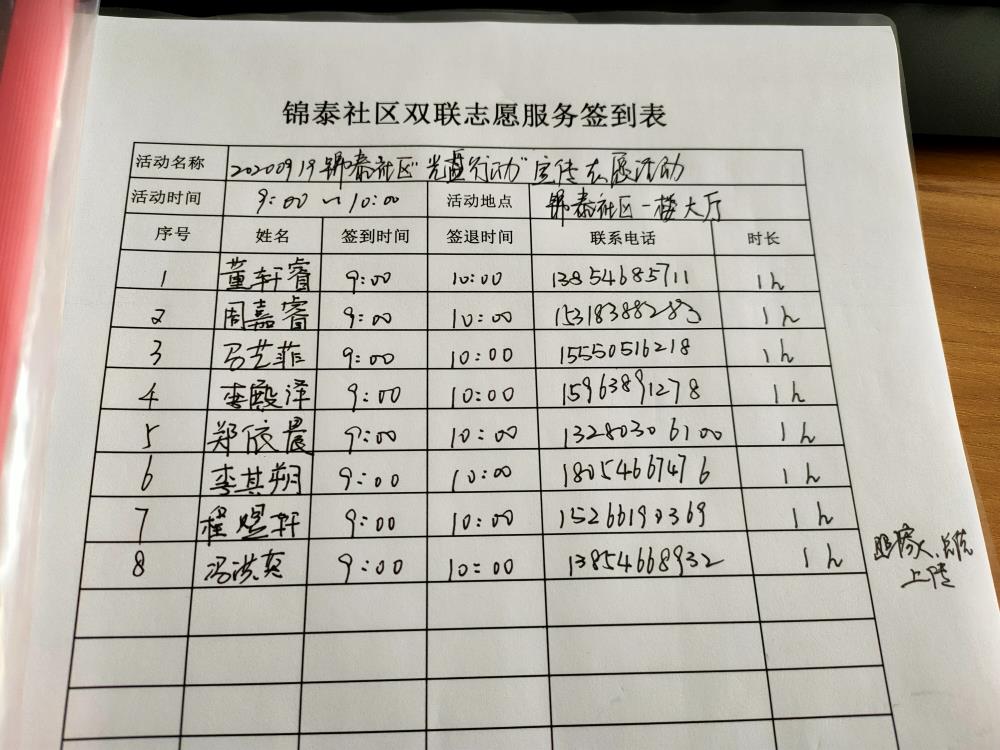 锦泰社区双联志愿服务签到表
活动名称 20200919锦泰社区"光盘行动"宣传志愿活动
活动时间 9:00~10:00 活动地点 锦泰社区一楼大厅
序号 姓名 签到时间 签退时间 联系电话 时长
1 董轩睿 9:00 10:00 13854685711 1h
2 周嘉睿 9:00 10:00 15318388283 1h
3 马艺菲 9:00 10:00 15550516218 1h
4 李殿泽 9:00 10:00 15963891278 1h
5 郑依晨 9:00 10:00 13280306100 1h
6 李其朔 9:00 10:00 18054667476 1h
7 程煜轩 9:00 10:00 15266190369 1h
8 冯洪英 9:00 10:00 13854668932 1h
上传